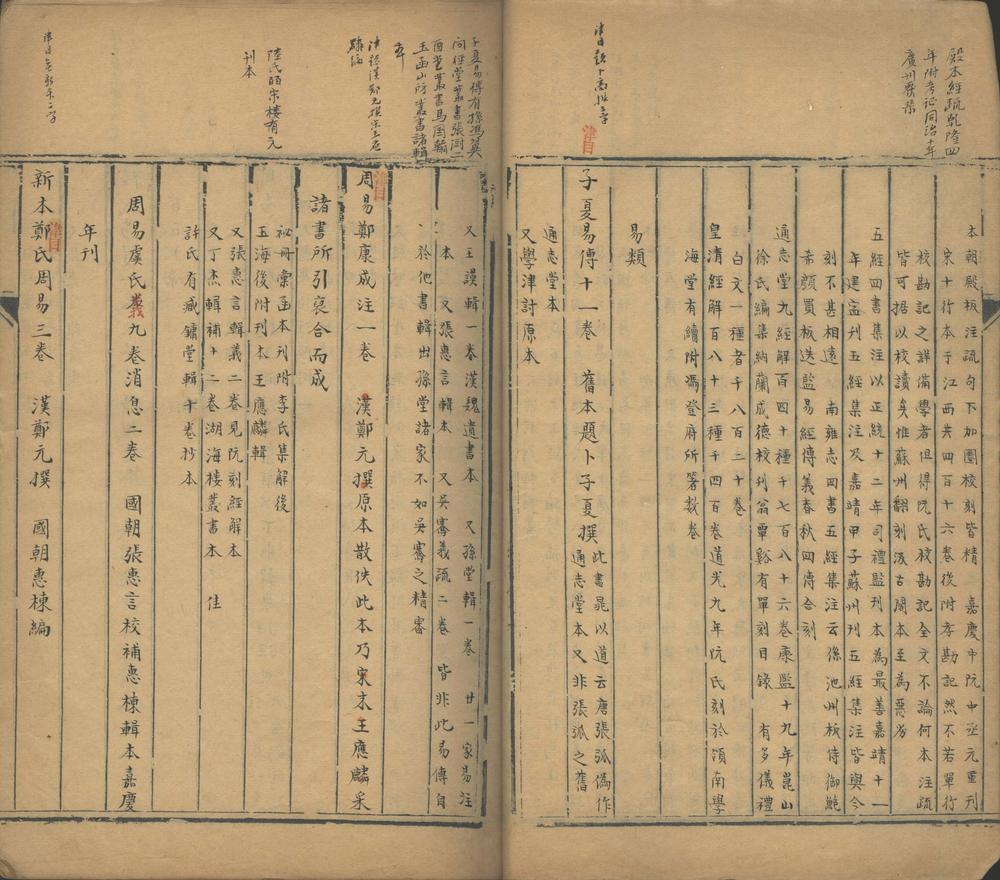 殿本經疏乾隆四
年附考証同治十年
廣州彙栞
本朝殿板注疏句下加圈校刻皆精 嘉慶中阮中丞元重刊
宋十行本于江西共四百十六卷後附考勘記然不若單行
校勘記之詳備學者但得阮氏校勘記全文不論何本注疏
皆可据以校讀矣惟蘇州翻刻汲古閣本至為惡劣
五經四書集注以正統十二年司禮監刊本為最善嘉靖十一
年建寧刊五經集注及嘉靖甲子蘇州刊五經集注皆與今
刻不甚相遠 南雍志四書五經集注云係池州板侍御鮑
希顏買板送監易經傳義春秋四傳合刻
通志堂九經解百四十種千七百八十六卷康熙十九年崑山
徐氏編集納蘭成德校刊翁覃谿有單刻目錄 有多儀禮
白文一種者千八百三十卷
皇清經解百八十三種千四百卷道光九年阮氏刻於領南學
海堂有續附馮登府所箸數卷
易類
津目
子夏易傳十一卷 舊本題卜子夏撰 此書晁以道云唐張弧偽作
通志堂本又非張弧之舊
通志堂本
又學津討原本
子夏易傳有孫馮翼
問經堂叢書張澍二
酉堂叢書馬國翰
玉函山房叢書諸輯
本
陸氏皕宋樓有元
刊本
又王謨輯一卷漢魏遺書本 又孫堂輯一卷 廿一家易注
本 又張惠言輯本 又吳騫義疏二卷 皆非此易傳自
於他書輯出孫堂諸家不如吳騫之精審
津目
周易鄭康成注一卷 漢鄭元撰原本散佚此本乃宋末王應麟采
諸書所引裒合而成
祕冊彙函本刊附李氏集解後
玉海後附刊本王應麟輯
又張惠言輯義二卷見阮刻經解本
又丁杰輯補十二卷湖海樓叢書本 佳
許氏有臧鏞堂輯十卷抄本
周易虞氏義九卷消息二卷 國朝張惠言校補惠棟輯本嘉慶
年刊
津目
新本鄭氏周易三卷 漢鄭元撰 國朝惠棟編